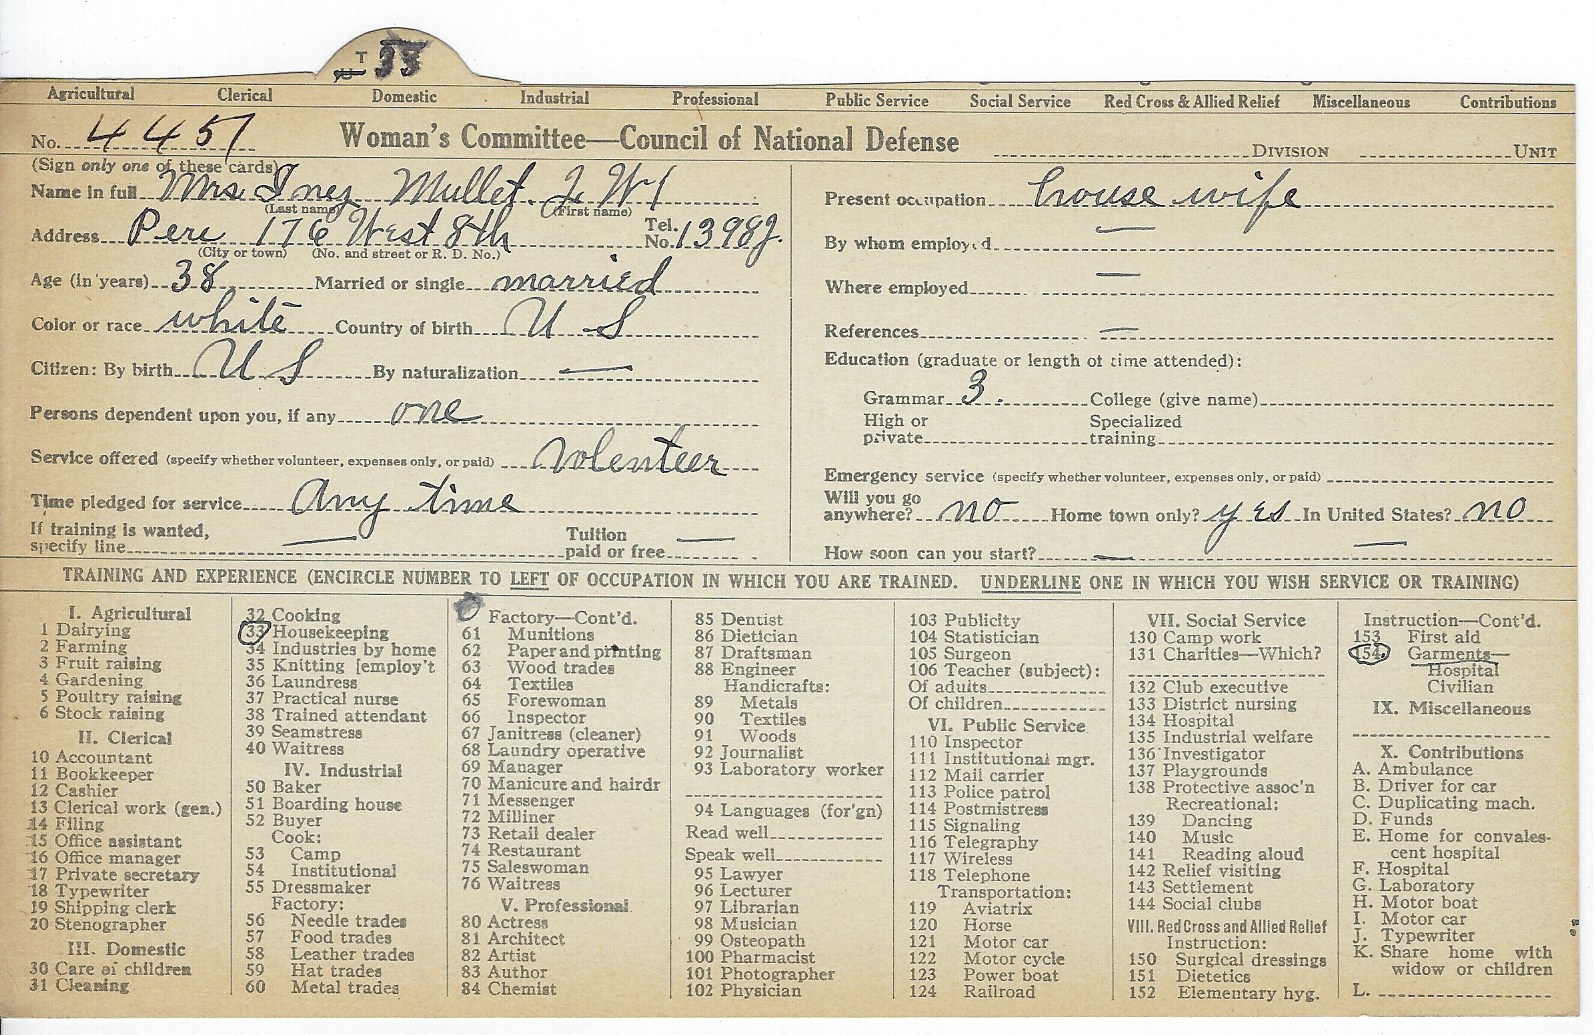 T 33
Agricultural Clerical Domestic Industrial Professional Public Service Social Service Red Cross & Allied Relief Miscellaneous Contributions
No. 4457 Woman's Committee—Council of National Defense DIVISION UNIT
(Sign only one of these cards)
Name in full Mrs Inez Mullet. J. W
(Last name) (First name)
Address Peru 176 West 8th Tel. No. 1398J.
(City or town) (No. and street or R. D. No.)
Age (in years) 38 Married or single married
Color or race white Country of birth U S
Citizen: By birth U S By naturalization —
Persons dependent upon you, if any one
Service offered (specify whether volunteer, expenses only, or paid) Volenteer
Time pledged for service any time
If training is wanted, specify line — Tuition paid or free —
Present occupation house wife
By whom employed —
Where employed —
References —
Education (graduate or length of time attended):
Grammar 3. College (give name)
High or private Specialized training
Emergency service (specify whether volunteer, expenses only, or paid)
Will you go anywhere? no Home town only? yes In United States? no
How soon can you start? — —
TRAINING AND EXPERIENCE (ENCIRCLE NUMBER TO LEFT OF OCCUPATION IN WHICH YOU ARE TRAINED. UNDERLINE ONE IN WHICH YOU WISH SERVICE OR TRAINING)
I. Agricultural
1 Dairying
2 Farming
3 Fruit raising
4 Gardening
5 Poultry raising
6 Stock raising
II. Clerical
10 Accountant
11 Bookkeeper
12 Cashier
13 Clerical work (gen.)
14 Filing
15 Office assistant
16 Office manager
17 Private secretary
18 Typewriter
19 Shipping clerk
20 Stenographer
III. Domestic
30 Care of children
31 Cleaning
32 Cooking
33 Housekeeping
34 Industries by home
35 Knitting [employ't
36 Laundress
37 Practical nurse
38 Trained attendant
39 Seamstress
40 Waitress
IV. Industrial
50 Baker
51 Boarding house
52 Buyer
Cook:
53 Camp
54 Institutional
55 Dressmaker
Factory:
56 Needle trades
57 Food trades
58 Leather trades
59 Hat trades
60 Metal trades
Factory—Cont'd.
61 Munitions
62 Paper and printing
63 Wood trades
64 Textiles
65 Forewoman
66 Inspector
67 Janitress (cleaner)
68 Laundry operative
69 Manager
70 Manicure and hairdr
71 Messenger
72 Milliner
73 Retail dealer
74 Restaurant
75 Saleswoman
76 Waitress
V. Professional
80 Actress
81 Architect
82 Artist
83 Author
84 Chemist
85 Dentist
86 Dietician
87 Draftsman
88 Engineer
Handicrafts:
89 Metals
90 Textiles
91 Woods
92 Journalist
93 Laboratory worker
94 Languages (for'gn)
Read well
Speak well
95 Lawyer
96 Lecturer
97 Librarian
98 Musician
99 Osteopath
100 Pharmacist
101 Photographer
102 Physician
103 Publicity
104 Statistician
105 Surgeon
106 Teacher (subject):
Of adults
Of children
VI. Public Service
110 Inspector
111 Institutional mgr.
112 Mail carrier
113 Police patrol
114 Postmistress
115 Signaling
116 Telegraphy
117 Wireless
118 Telephone
Transportation:
119 Aviatrix
120 Horse
121 Motor car
122 Motor cycle
123 Power boat
124 Railroad
VII. Social Service
130 Camp work
131 Charities—Which?
132 Club executive
133 District nursing
134 Hospital
135 Industrial welfare
136 Investigator
137 Playgrounds
138 Protective assoc'n
Recreational:
139 Dancing
140 Music
141 Reading aloud
142 Relief visiting
143 Settlement
144 Social clubs
VIII. Red Cross and Allied Relief
Instruction:
150 Surgical dressings
151 Dietetics
152 Elementary hyg.
Instruction—Cont'd.
153 First aid
154 Garments—
Hospital
Civilian
IX. Miscellaneous
X. Contributions
A. Ambulance
B. Driver for car
C. Duplicating mach.
D. Funds
E. Home for convales-
cent hospital
F. Hospital
G. Laboratory
H. Motor boat
I. Motor car
J. Typewriter
K. Share home with
widow or children
L.